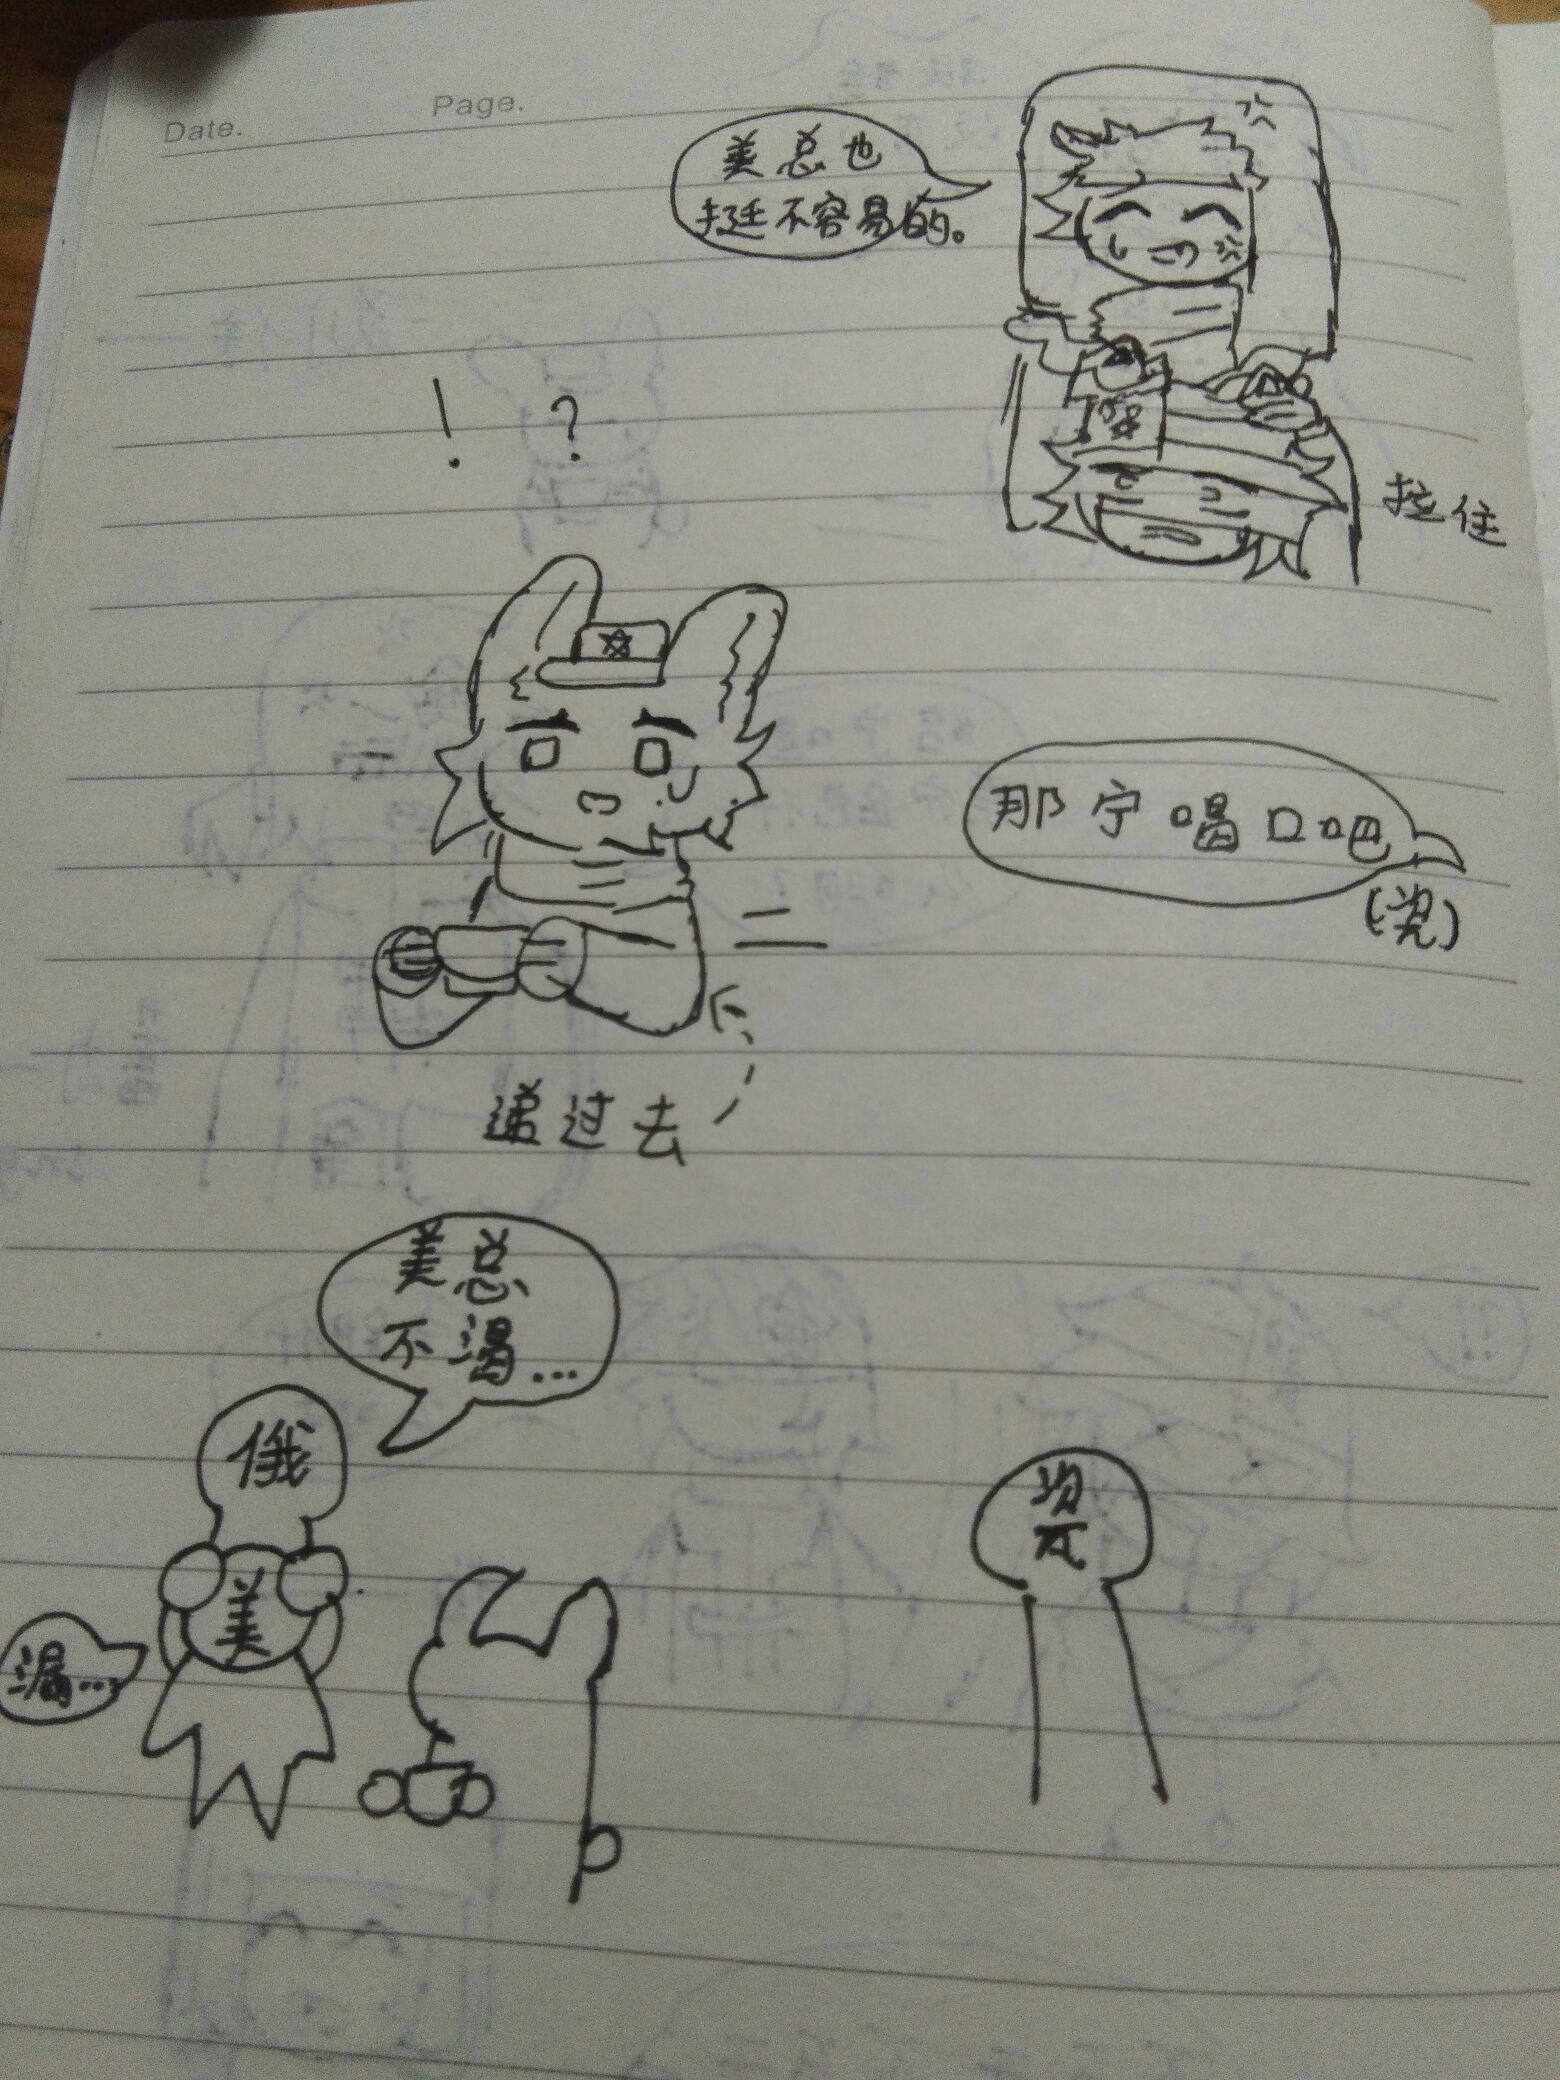 Date.
Page.
美总也
挺不容易的。
! ?
拉住
那宁喝口吧
(瓷)
递过去
美总
不渴...
俄
瓷
美
渴...